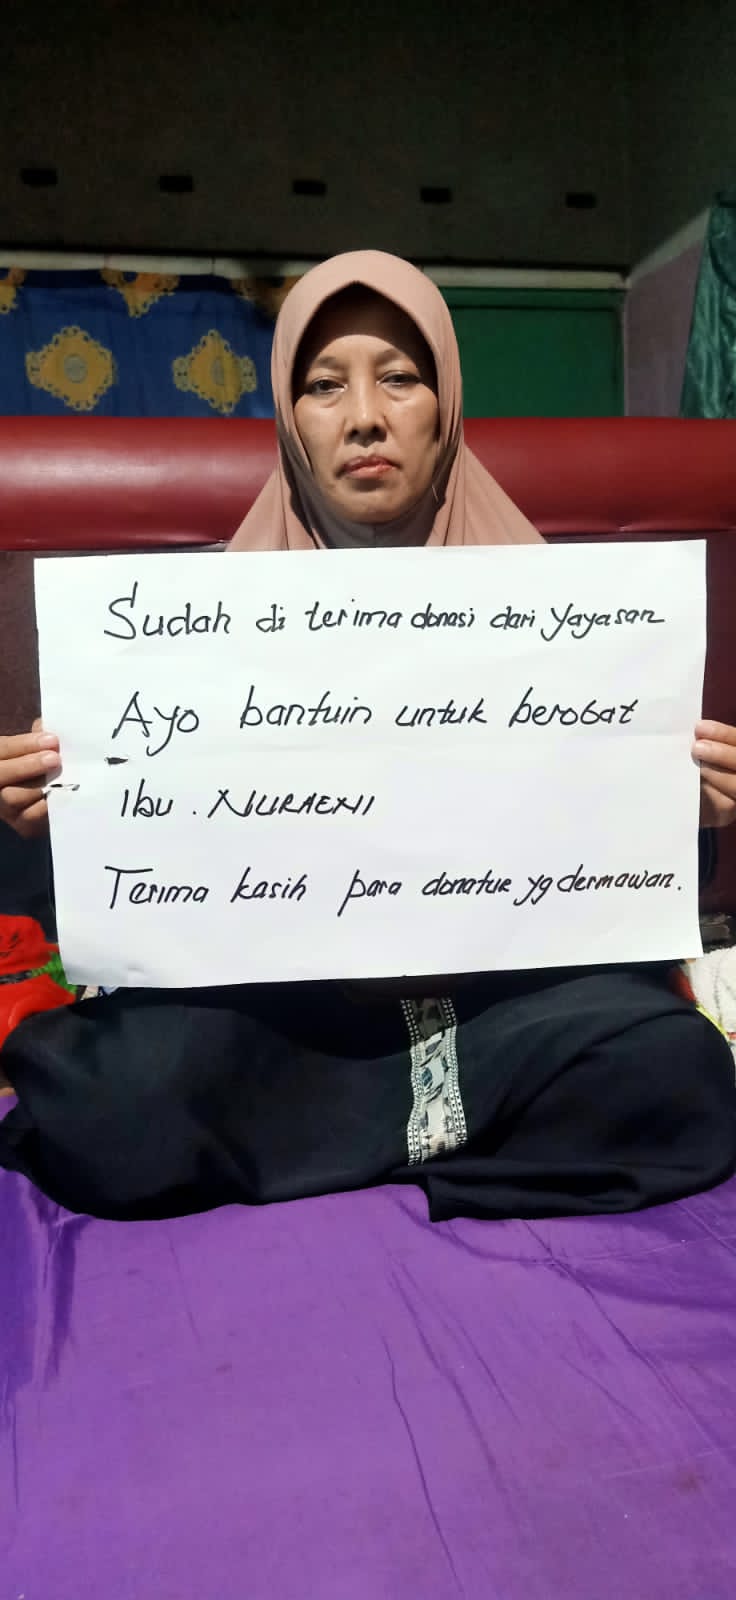 Sudah di terima donasi dari Yayasan
Ayo bantuin untuk berobat
Ibu. NURAENI
Terima kasih para donatur yg dermawan.